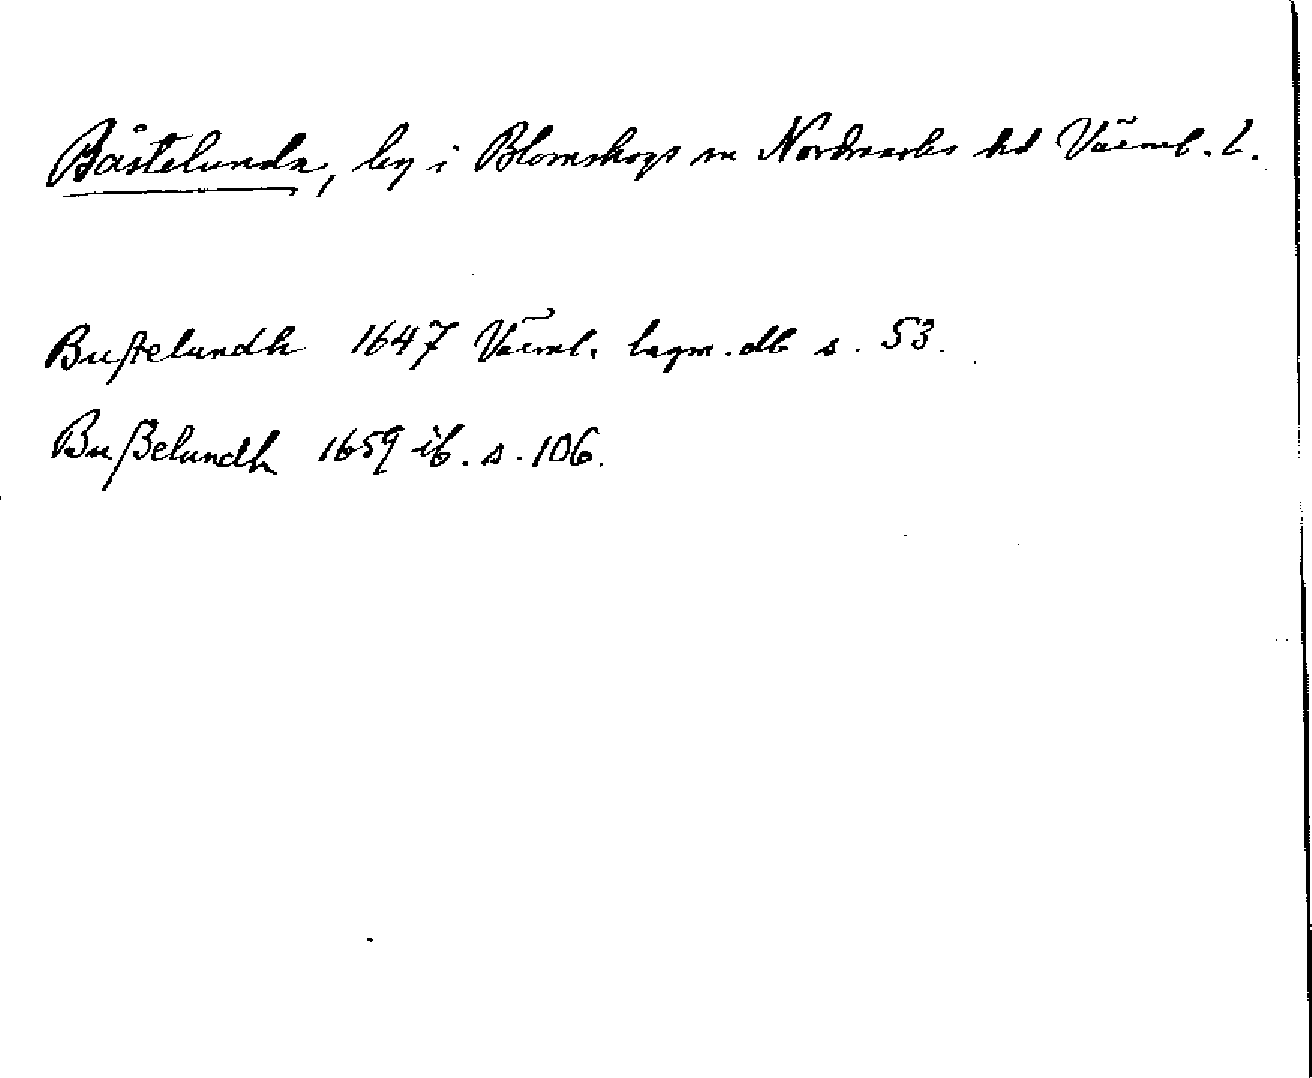 Båstelunda, by i Blomskogs sn Nordmarks hd Värml. l.
Bustelundh 1647 Värml. lagm. db s. 53.
Bußelundh 1659 ib. s. 106.